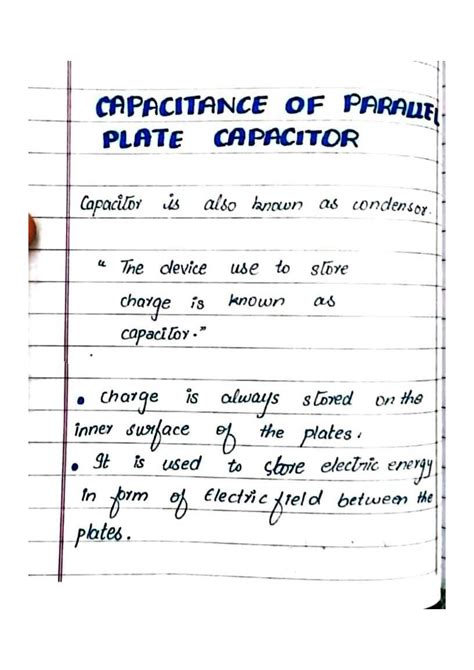 CAPACITANCE OF PARALLEL
PLATE CAPACITOR
Capacitor is also known as condensor.
“ The device use to store
charge is known as
capacitor.”
• Charge is always stored on the
inner surface of the plates.
• It is used to store electric energy
in form of Electric field between the
plates.